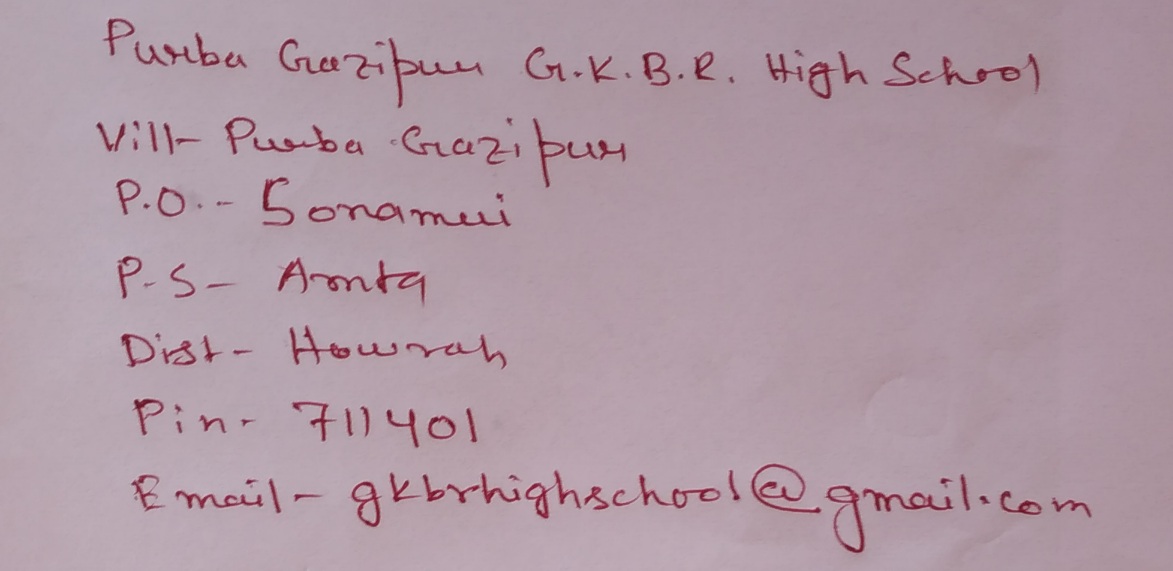 Purba Gazipur G.K.B.R. High School
Vill- Purba Gazipur
P.O.-- Sonamui
P-S- Amta
Dist- Howrah
Pin- 711401
Email- gkbrhighschool@gmail.com